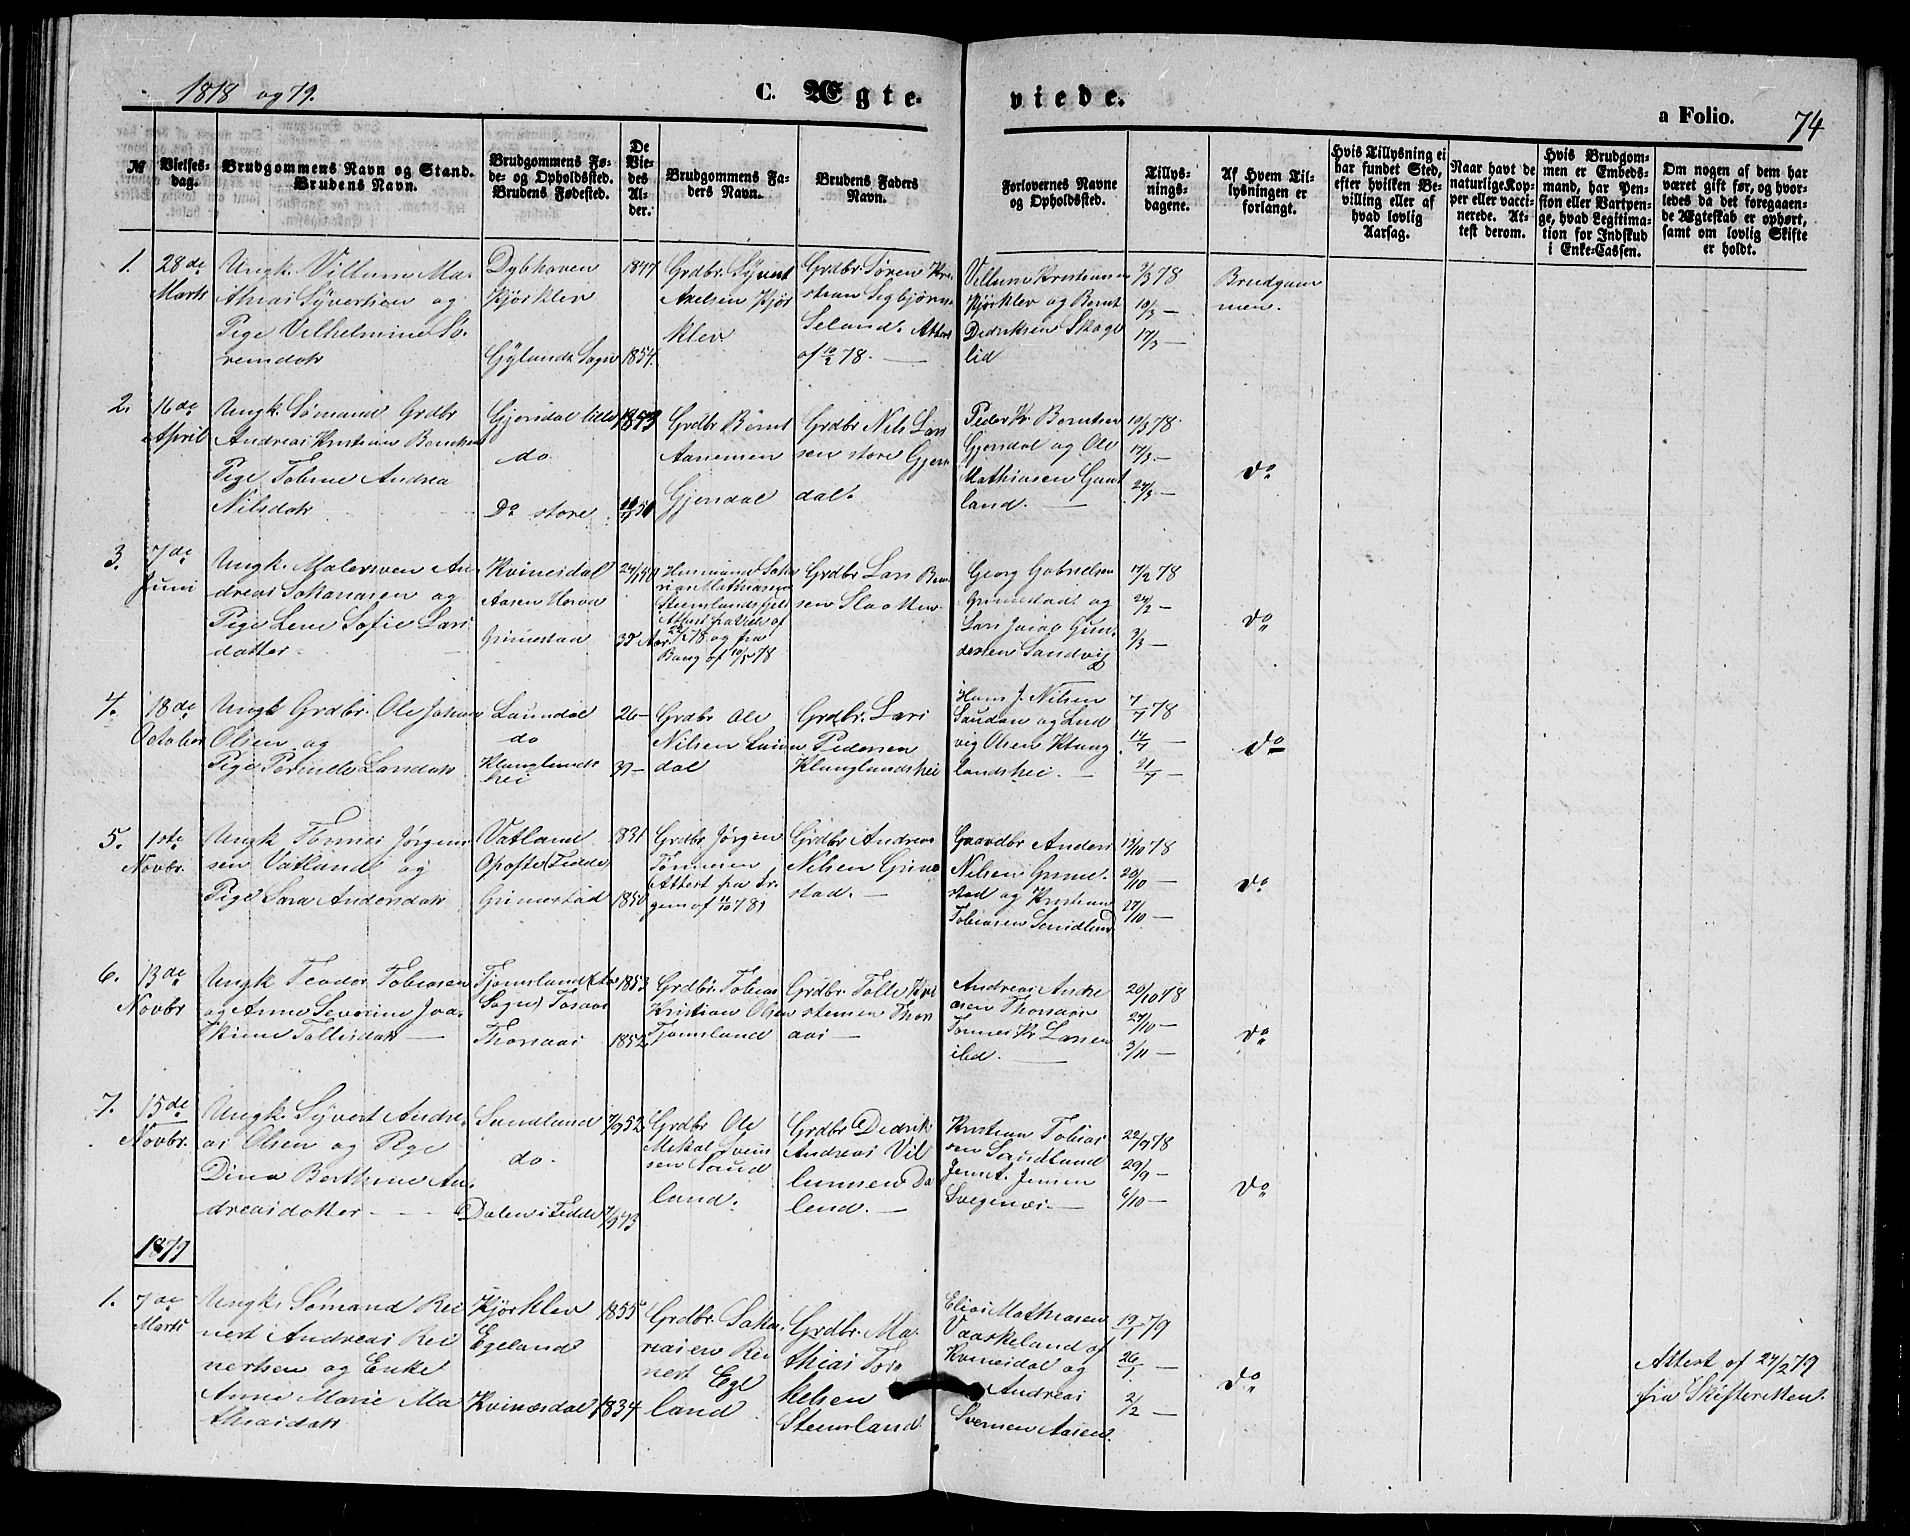 1878 og 79.
C. Ægte viede.
a Folio. 74
№
Vielses-
dag.
Brudgommens Navn og Stand.
Brudens Navn.
Brudgommens Fø-
de- og Opholdsted.
Brudens Fødested.
De
Vie-
des
Al-
der.
Brudgommens Fa-
ders Navn.
Brudens Faders
Navn.
Forlovernes Navne
og Opholdsted.
Tillys-
nings-
dagene.
Af Hvem Til-
lysningen er
forlangt.
Hvis Tillysning ei
har fundet Sted,
efter hvilken Be-
villing eller af
hvad lovlig
Aarsag.
Naar havt de
naturlige Kop-
per eller vacci-
nerede. At-
test derom.
Hvis Brudgom-
men er Embeds-
mand, har Pen-
sion eller Vartpen-
ge, hvad Legitima-
tion for Indskud
i Enke-Cassen.
Om nogen af dem har
været gift før, og hvor-
ledes da det foregaaen-
de Ægteskab er ophørt,
samt om lovlig Skifte
er holdt.
1.
28de
Marts
Ungk. Villum Ma-
thias Syvertsen og
Pige Vilhelmine Sø-
rensdatr
Dybhaven
Kjørklev
Gylands Sogn
1847
1854.
Grdbr. Syvert
Axelsen Kjør
klev
Grdbr. Søren Kri-
stian Sigbjørns
Seland. Attest
af 10/2 78. —
Villum Kristiansen
Kjørklev og Bernt
Dedriksen Skage
lid
3/3 78
10/3 —
17/3 —
Brudgom
men.
2.
16de
April
Ungk. Sømand Grdbr
Andreas Kristian Berntsen
Pige Tobine Andrea
Nilsdatr
Gjersdal lille
do
Do store
1853
Grdbr Bernt
Aanensen
Gjersdal
Grdbr Nils Lar
sen store Gjers
dal.
Peder Kr. Berntsen
Gjersdal og Ole
Mathiasen
land. —
10/3 78
17/3 —
24/3 —
Do
3.
7de
Juni
Ungk. Malersven An-
dreas Sakariasen og
Pige Lene Sofie Lars
datter
Kvinesdal
Aasen Herad
Grimestad
Husmand Saka
rias Mathiasen
Grdbr Lars Bern
sen Slaatten
Georg Gabrielsen
Grimestad og
Lars Jakob Gun
dersen Sandvig
17/2 78
24/2 —
3/3 —
Do
4.
18de
October
Ungk Grdbr. Ole Johan
Olsen og
Pige Pernille Larsdatr
Laundal
do
Klunglands
hei
26 —
37 —
Grdbr Ole
Nilsen Laun
dal
Grdbr. Lars
Pedersen
Klunglandshei
Hans J. Nilsen
Saudan og Lud
vig Olsen Klung
landshei. —
7/7 78
14/7 —
21/7 —
Do
5.
1ste
Novbr.
Ungk Tønnes Jørgen
sen Vatland og
Pige Sara Andersdatr
Vatland
Opofte (Fedde
Grimestad
1831
1850
Grdbr. Jørgen
Tønnesen
Attest fra Sr.
Grdbr Andreas
Nilsen Grime
stad. —
Gaardbr Anders
Nilsen Grime-
stad og Kristian
Tobiasen Sandland
13/10 78
20/10 —
27/10 —
Do
6.
13de
Novbr
Ungk Teodor Tobiasen
og Anne Severine Joa-
kime Tollisdatr —
Tjomsland (
Sogn) Tosaas
Thorsaas
1853
1852
Grdbr. Tobias
Kristian Olsen
Tjomsland
Grdbr. Tolle Tor
stensen Thors
aas —
Andreas Andre
asen Thorsaas
Tønnes Kr Larsen
ibd. —
20/10 78
27/10 —
3/11 —
Do
7.
15de
Novbr.
Ungk. Syvert Andre-
as Olsen og Pige
Dina Berthine An-
dreasdatter — — —
Sandland
do.
Dalen i Fedde
7/9 52
Grdbr Ole
Mikal Svend
sen Sand
land.
Grdbr Didrik
Andreas Vil
lumsen Da
lend. —
Kristian Tobias
sen Sandland
Jens A. Jensen
Svegenes —
22/9 78
29/9 —
6/10 —
Do
1879
1.
7de
Marts
Ungk. Sømand Rei
nert Andreas Rei
nertsen og Enke
Anne Marie Ma
thiasdatr
Kjørklev
Egeland
Kvinesdal
1855
1834
Grdbr. Saka-
riasen Rei
nert Ege
land
Grdbr. Ma-
thias Tor-
kelsen
Steensland.
Elias Mathiasen
Vaaskeland af
Kvinesdal og
Andreas
Svensen Aasen.
19/1 79
26/1 —
2/2 —
Do
Attest af 24/2 79
fra Skifteretten.